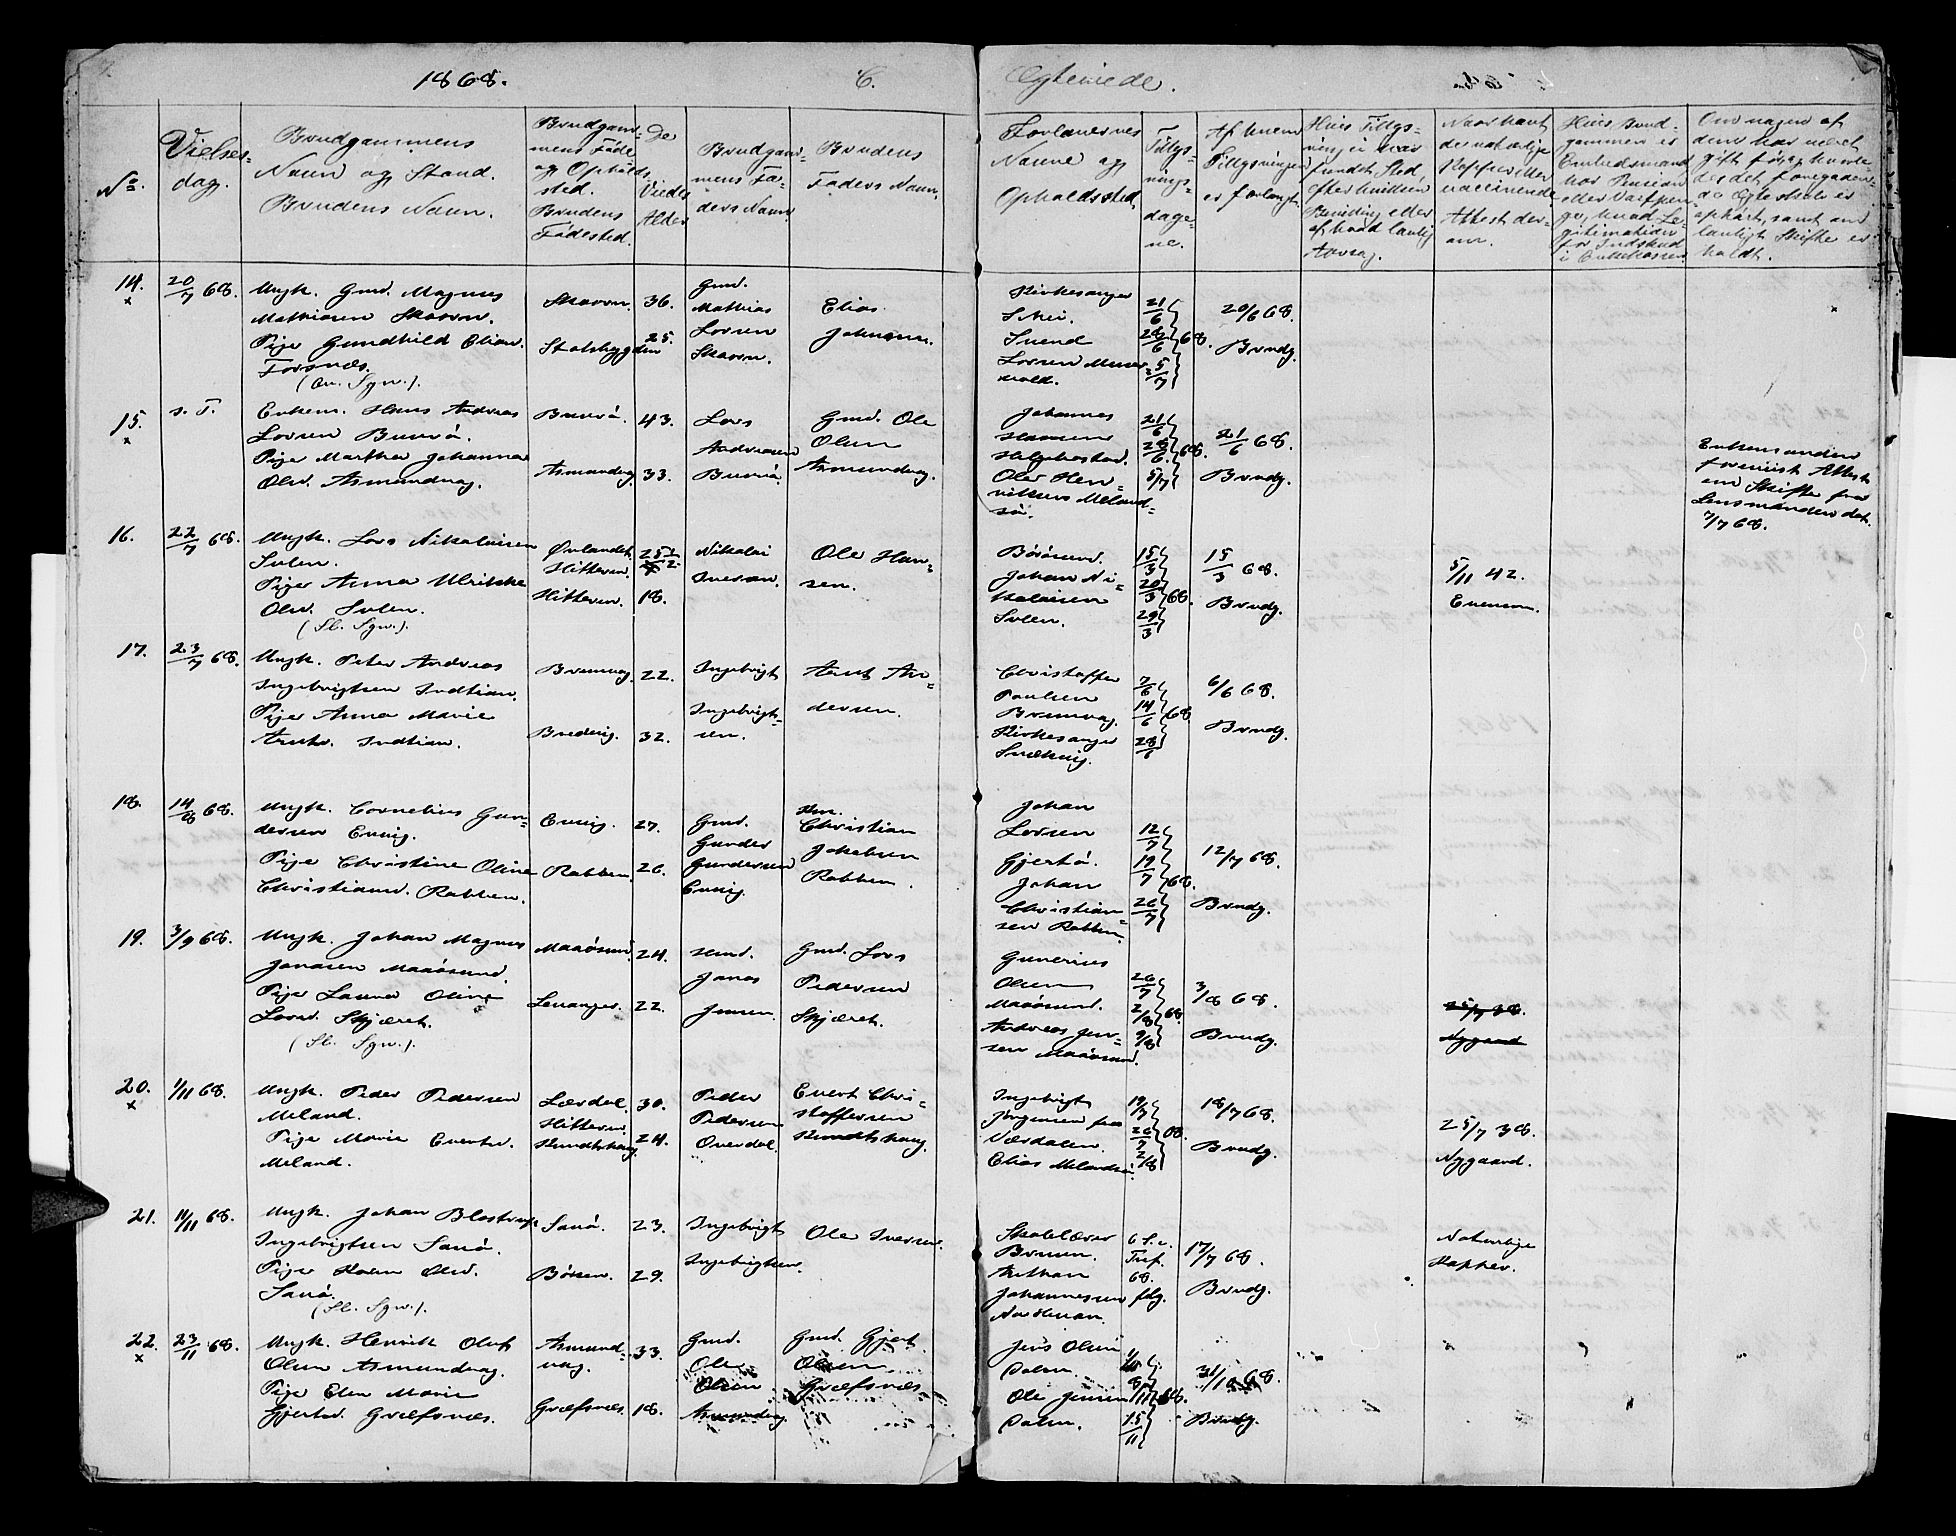 1868. C. Egteviede.
No. Vielses-
dag. Brudgommens
Navn og Stand.
Brudens Navn. Brudgom-
mens Føde
og Opholds
sted.
Brudens
Fødested. De
Viedes
Alder Brudgom-
mens Fa-
ders Navn Brudens
Faders Navn. Forlovernes
Navne og
Opholdssted. Tillys-
nings-
dage-
ne. Af hvem
Tillysningen
er forlangt. Hvis Tillys-
ning ei har
fundet Sted,
efter hvilken
Bevilling eller
af hvad lovlig
Aarsag. Naar havt
de naturlige
Kopper eller
vaccinerede
Attest der-
om. Hvis Brud-
gommen er
Embedsmand
har Pension
eller Vartpen-
ge, hvad Le-
gitimation
for Indskud
i Enkekassen Om nogen af
dem har været
gift før og hvorle-
des det foregaaen-
de Egteskab er
ophørt, samt om
lovligt Skifte er
holdt.
14.
x 20/7 68. Ungk. Gmd. Magnus
Mathiasen Skaarn.
Pige Gundhild Elias.
Forsnæs.
Skaarn. 36.
25. Gmd.
Mathias
Lorsen
Skaarn. Elias
Johnsen. Kirkesanger
Skei.
Svend
Lorsen 21/6
28/6 68.
5/7 20/6 68.
Brudg. x
15.
x s. D. Enkem. Hans Andreas
Lorsen Burøø.
Pige Martha Johanna
Olsd. Asmundvag. 43.
Asmundvag 33. Lars
Andreasen Gmd. Ole
Olsen
Asmundvag. Johannes
Hansen
Helgebostad.
Oler Hen-
riksen Meland-
sø. 21/6
28/6 68.
5/7 21/6 68.
Brudg. Enkemanden
fremvist Attest
om Skifte fra
Lensmanden dat.
7/7 68.
16. 22/7 68. Ungk. Lars Nikolaisen
Sulen.
Pige Anna Ulrikke
Olsd. Sulen.
(Sl. Sgn.). Ørlandet
Hitteren. 25 1/2
Hitteren. 18. Nikolai
Iversen. Ole Han-
sen. Børøsund.
Johan Ni-
kolaisen
Sulen. 15/3
20/3 68.
29/3 15/3 68.
Brudg. 5/11 42.
Evensen.
17. 23/7 68. Ungk. Peter Andreas
Ingebrigtsen Indtian.
Pige Anna Marie
Arntsd. Indtian. 22.
Bredvig. 32. Ingebrigt
Ingebrigt-
sen. Arnt An-
dersen. Christoffer
Paulsen
Kirkesanger
7/6
14/6 68
28/6 6/6 68.
Brudg.
18. 14/8 68. Ungk. Cornelius Gun-
dersen Envig.
Pige Christine Oline
Christiansd. Rabben. Envig. 27.
Rabben. 26. Gmd.
Gunder
Gundersen
Envig. Hm.
Christian
Jakobsen
Rabben. Johan
Lorsen
Gjertø.
Johan
Christian-
sen Rabben. 12/7
19/7 68.
26/7 12/7 68.
Brudg.
19. 3/9 68. Ungk. Johan Magnus
Jonasen Maøsund.
Pige Laura Oline
Larsd. Skjæret.
(Sl. Sgn.). Maaøsund 24.
Levanger. 22. Hmd.
Jonas
Jensen. Gmd. Lars
Pedersen
Skjæret. Gunerius
Olsen
Maøsund.
Andreas Jen-
sen Maaøsund. 26/7
2/8 68.
9/8 3/8 68.
Brudg. 25/7 38.
Nygaard
20.
x 1/11 68. Ungk. Peder Pedersen
Meland.
Pige Marie Evertsd.
Meland. Lerdal.
Hitteren. 30.
24. Peder
Pedersen
Overdal. Evert Chri-
stoffersen
Ingebrigt
Jørgensen fra
Værdalen.
Elias Melandsø. 19/7
26/7 68.
2/8 18/7 68.
Brudg. 25/7 38.
Nygaard.
21. 11/11 68. Ungk. Johan
Ingebrigtsen Sanø.
Pige Karen Olsd.
Sanø.
(Sl. Sgn.). Sanø. 23.
Børsen. 29. Ingebrigt
Ingebrigtsen. Ole Iversen. Skolelærer
Johannesen
6 S. e.
Tref.
68.
fdg. 17/7 68.
Brudg. Naturlige
Kopper.
22.
x 23/11 68. Ungk. Henrik Oluf
Olsen Asmundvag.
Pige Elen Marie
Gjertsd. Græfsnæs. Asmund-
vag. 33.
Græfsnæs. 18. Gmd.
Ole
Olsen
Asmundvag Gmd. Gjert
Olsen
Græfsnæs. Jens Olsen
Dolm.
Ole Jensen
Dolm. 1/11
8/11 68.
15/11 31/10 68.
Brudg.